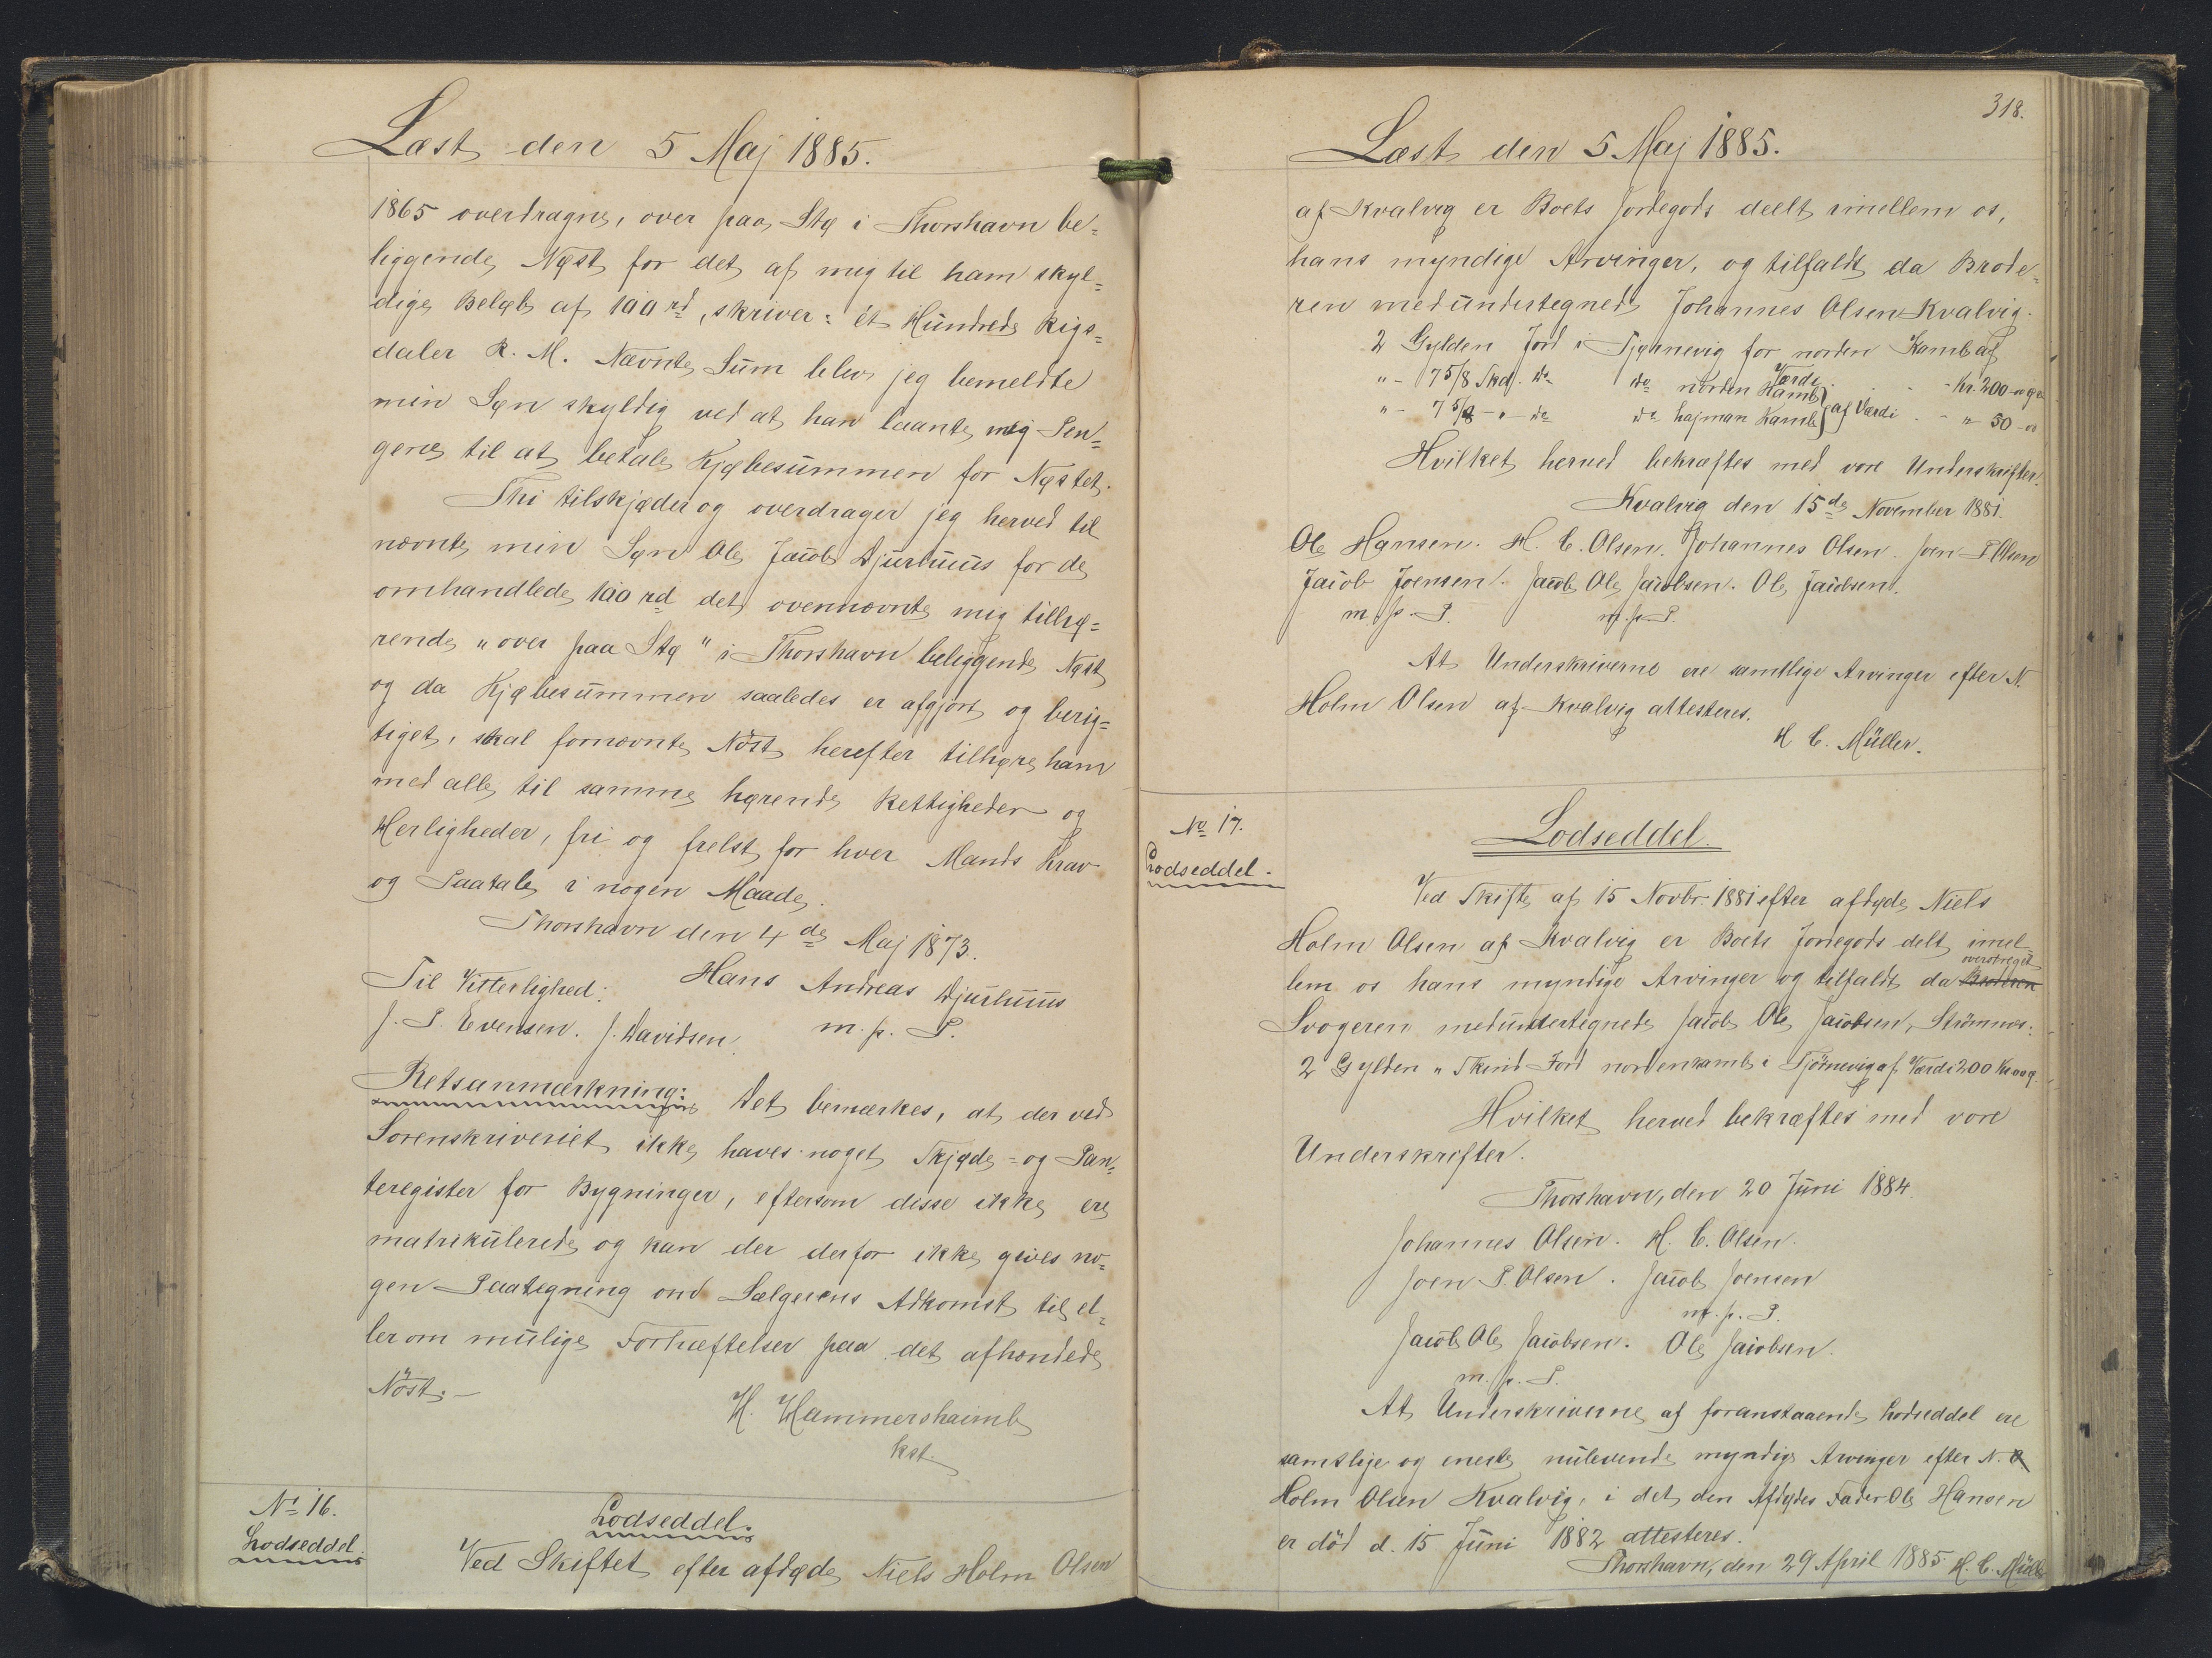 Læst den 5 Maj 1885.
1865 overdragne, over paa Stø i Thorshavn be=
liggende Nøst for det af mig til ham skyl=
dige Beløb af 100 rd, skriver: et Hundrede Rigs=
daler R. M. Nævnte Sum blev jeg bemeldte
min Søn skyldig ved at han laante mig Pen=
gene til at betale Kjøbesummen for Nøstet.
Thi tilskjøder og overdrager jeg herved til
nævnte min Søn Ole Jacob Djurhuus for de
omhandlede 100 rd det ovennævnte mig tilhø=
rende "over paa Stø" i Thorshavn beliggende Nøst
og da Kjøbesummen saaledes er afgjort og berig=
tiget, skal fornævnte Nöst herefter tilhøre ham
med alle til samme hørende Rettigheder og
Herligheder, fri og frelst for hver Mands Krav
og Paatale i nogen Maade.
Thorshavn den 4de Maj 1873.
Til Vitterlighed: Hans Andreas Djurhuus
J. P. Evensen. J. Davidsen. m. p. P.
Retsanmærkning: Det bemærkes, at der ved
Sorenskriveriet ikke haves noget Skjøde- og Pan=
teregister for Bygninger, eftersom disse ikke ere
matrikulerede og kan der derfor ikke gives no=
gen Paategning om Sælgerens Adkomst til el=
ler om mulige Forhæftelser paa det afhændede
Nöst.—
H. Hammershaimb
kst.
No 16.
Lodseddel.
Lodseddel.
Ved Skiftet efter afdøde Niels Holm Olsen
318.
Læst den 5 Maj 1885.
af Kvalvig er Boets Jordegods deelt imellem os,
hans myndige Arvinger, og tilfaldt da Brode=
ren medundertegnede Johannes Olsen Kvalvig.
2 Gylden Jord i Tjørnevig for norden Kamb af
Værdi - Kr. 200 - 00 Øre
" - 7 5/8 Skd. do do norden Hamb
" - 7 5/8 - " - do do hajman Kamb } af Værdi - " 50 - 00
Hvilket herved bekræftes med vore Underskrifter.
Kvalvig den 15de November 1881.
Ole Hansen. H. C. Olsen. Johannes Olsen. Joen P Olsen
Jacob Joensen. Jacob Ole Jacobsen. Ole Jacobsen.
m. p. P. m. p. P.
At Underskriverne ere samtlige Arvinger efter N.
Holm Olsen af Kvalvig attesteres.
H C. Müller.
No 17.
Lodseddel.
Lodseddel.
Ved Skifte af 15 Novbr. 1881 efter afdøde Niels
Holm Olsen af Kvalvig er Boets Jordegods delt imel=
overstreget
lem os hans myndige Arvinger og tilfaldt da Broderen
Svogeren medundertegnede Jacob Ole Jacobsen, Strömnæs:
2 Gylden " Skind Jord nordenkamb i Tjörnevig af Værdi 200 Kr 00 ø.
Hvilket herved bekræftes med vore
Underskrifter.
Thorshavn, den 20 Juni 1884.
Johannes Olsen. H. C. Olsen.
Joen P. Olsen. Jacob Joensen
m. p. P.
Jacob Ole Jacobsen. Ole Jacobsen.
m. p. P.
At Underskriverne af foranstaaende Lodseddel ere
samtlige og eneste nulevende myndige Arvinger efter N.
Holm Olsen Kvalvig, i det den Afdødes Fader Ole Hansen
er död d. 15 Juni 1882 attesteres.
Thorshavn, den 29 April 1885. H. C. Müller